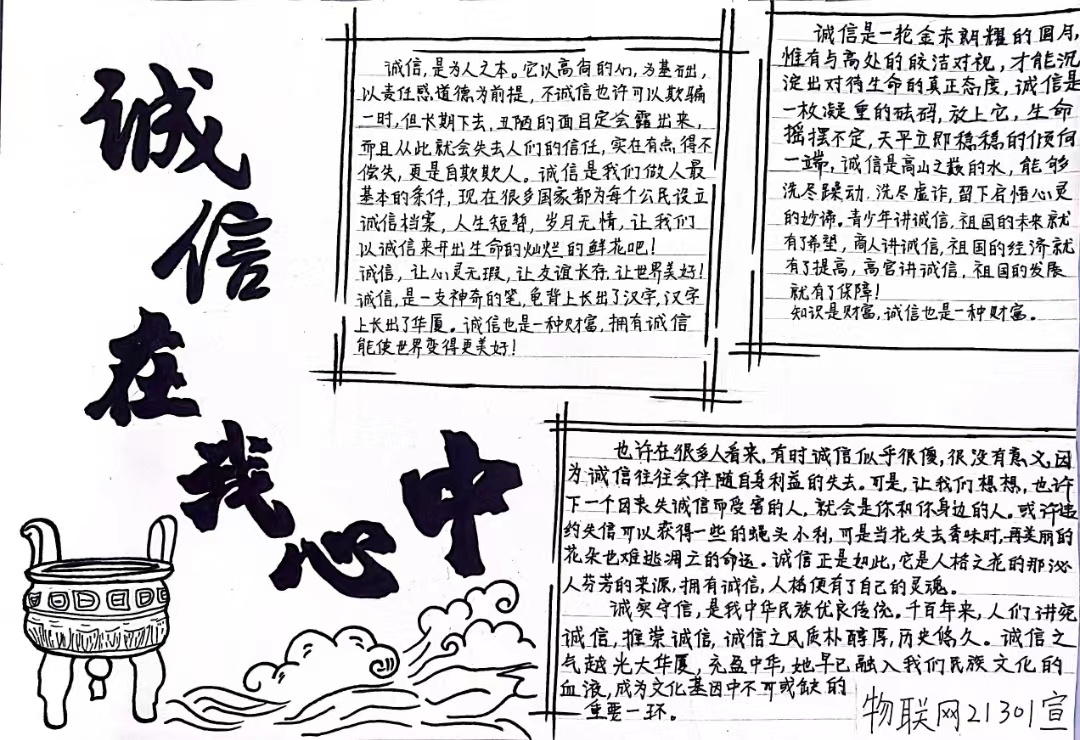 诚信在我心中
诚信,是为人之本。它以高尚的人,为基础,
以责任感道德为前提,不诚信也许可以欺骗
一时,但长期下去,丑陋的面目定会露出来,
而且从此就会失去人们的信任,实在有点得不
偿失,更是自欺欺人。诚信是我们做人最
基本的条件,现在很多国家都为每个公民设立
诚信档案,人生短暂,岁月无情,让我们
以诚信来开出生命的灿烂的鲜花吧!
诚信,让心灵无瑕,让友谊长存,让世界美好!
诚信,是一支神奇的笔,龟背上长出了汉字,汉字
上长出了华厦。诚信也是一种财富,拥有诚信
能使世界变得更美好!
诚信是一轮金未朗耀的圆月,
惟有与高处的皎洁对视,才能沉
淀出对待生命的真正态度,诚信是
一枚凝重的砝码,放上它,生命
摇摆不定,天平立即稳稳的倾向
一端,诚信是高山之巅的水,能够
洗尽躁动,洗尽虚诈,留下启悟心灵
的妙谛。青少年讲诚信,祖国的未来就
有了希望,商人讲诚信,祖国的经济就
有了提高,高官讲诚信,祖国的发展
就有了保障!
知识是财富,诚信也是一种财富。
也许在很多人看来,有时诚信似乎很傻,很没有意义,因
为诚信往往会伴随自身利益的失去。可是,让我们想想,也许
下一个因丧失诚信而受害的人,就会是你和你身边的人。或许违
约失信可以获得一些的蝇头小利,可是当花失去香味时,再美丽的
花朵也难逃凋亡的命运。诚信正是如此,它是人格之花的那沁
人芬芳的来源,拥有诚信,人格便有了自己的灵魂。
诚实守信,是我中华民族优良传统。千百年来,人们讲究
诚信,推崇诚信,诚信之风质朴醇厚,历史悠久。诚信之
气越光大华厦,充盈中华,她早已融入我们民族文化的
血液,成为文化基因中不可或缺的
重要一环。
物联网21301宣